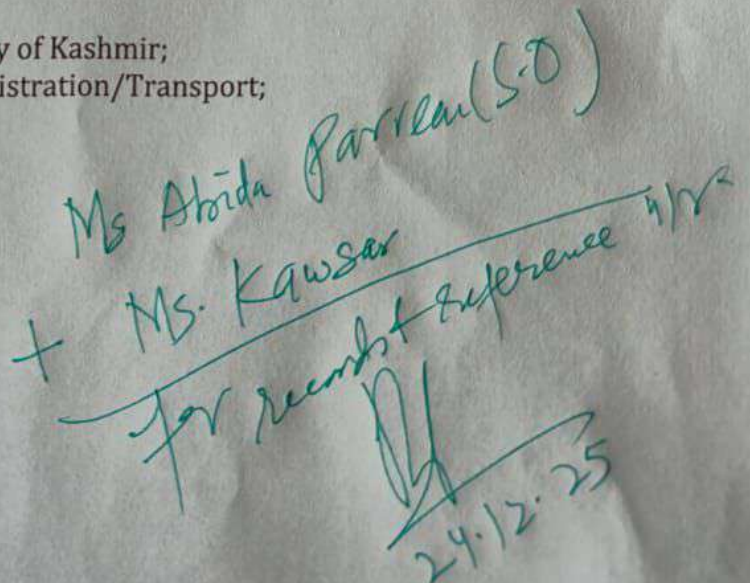 y of Kashmir;
istration/Transport;
Ms Abida Parveen (S.O)
+ Ms. Kawsar
for records + reference
24.12.25